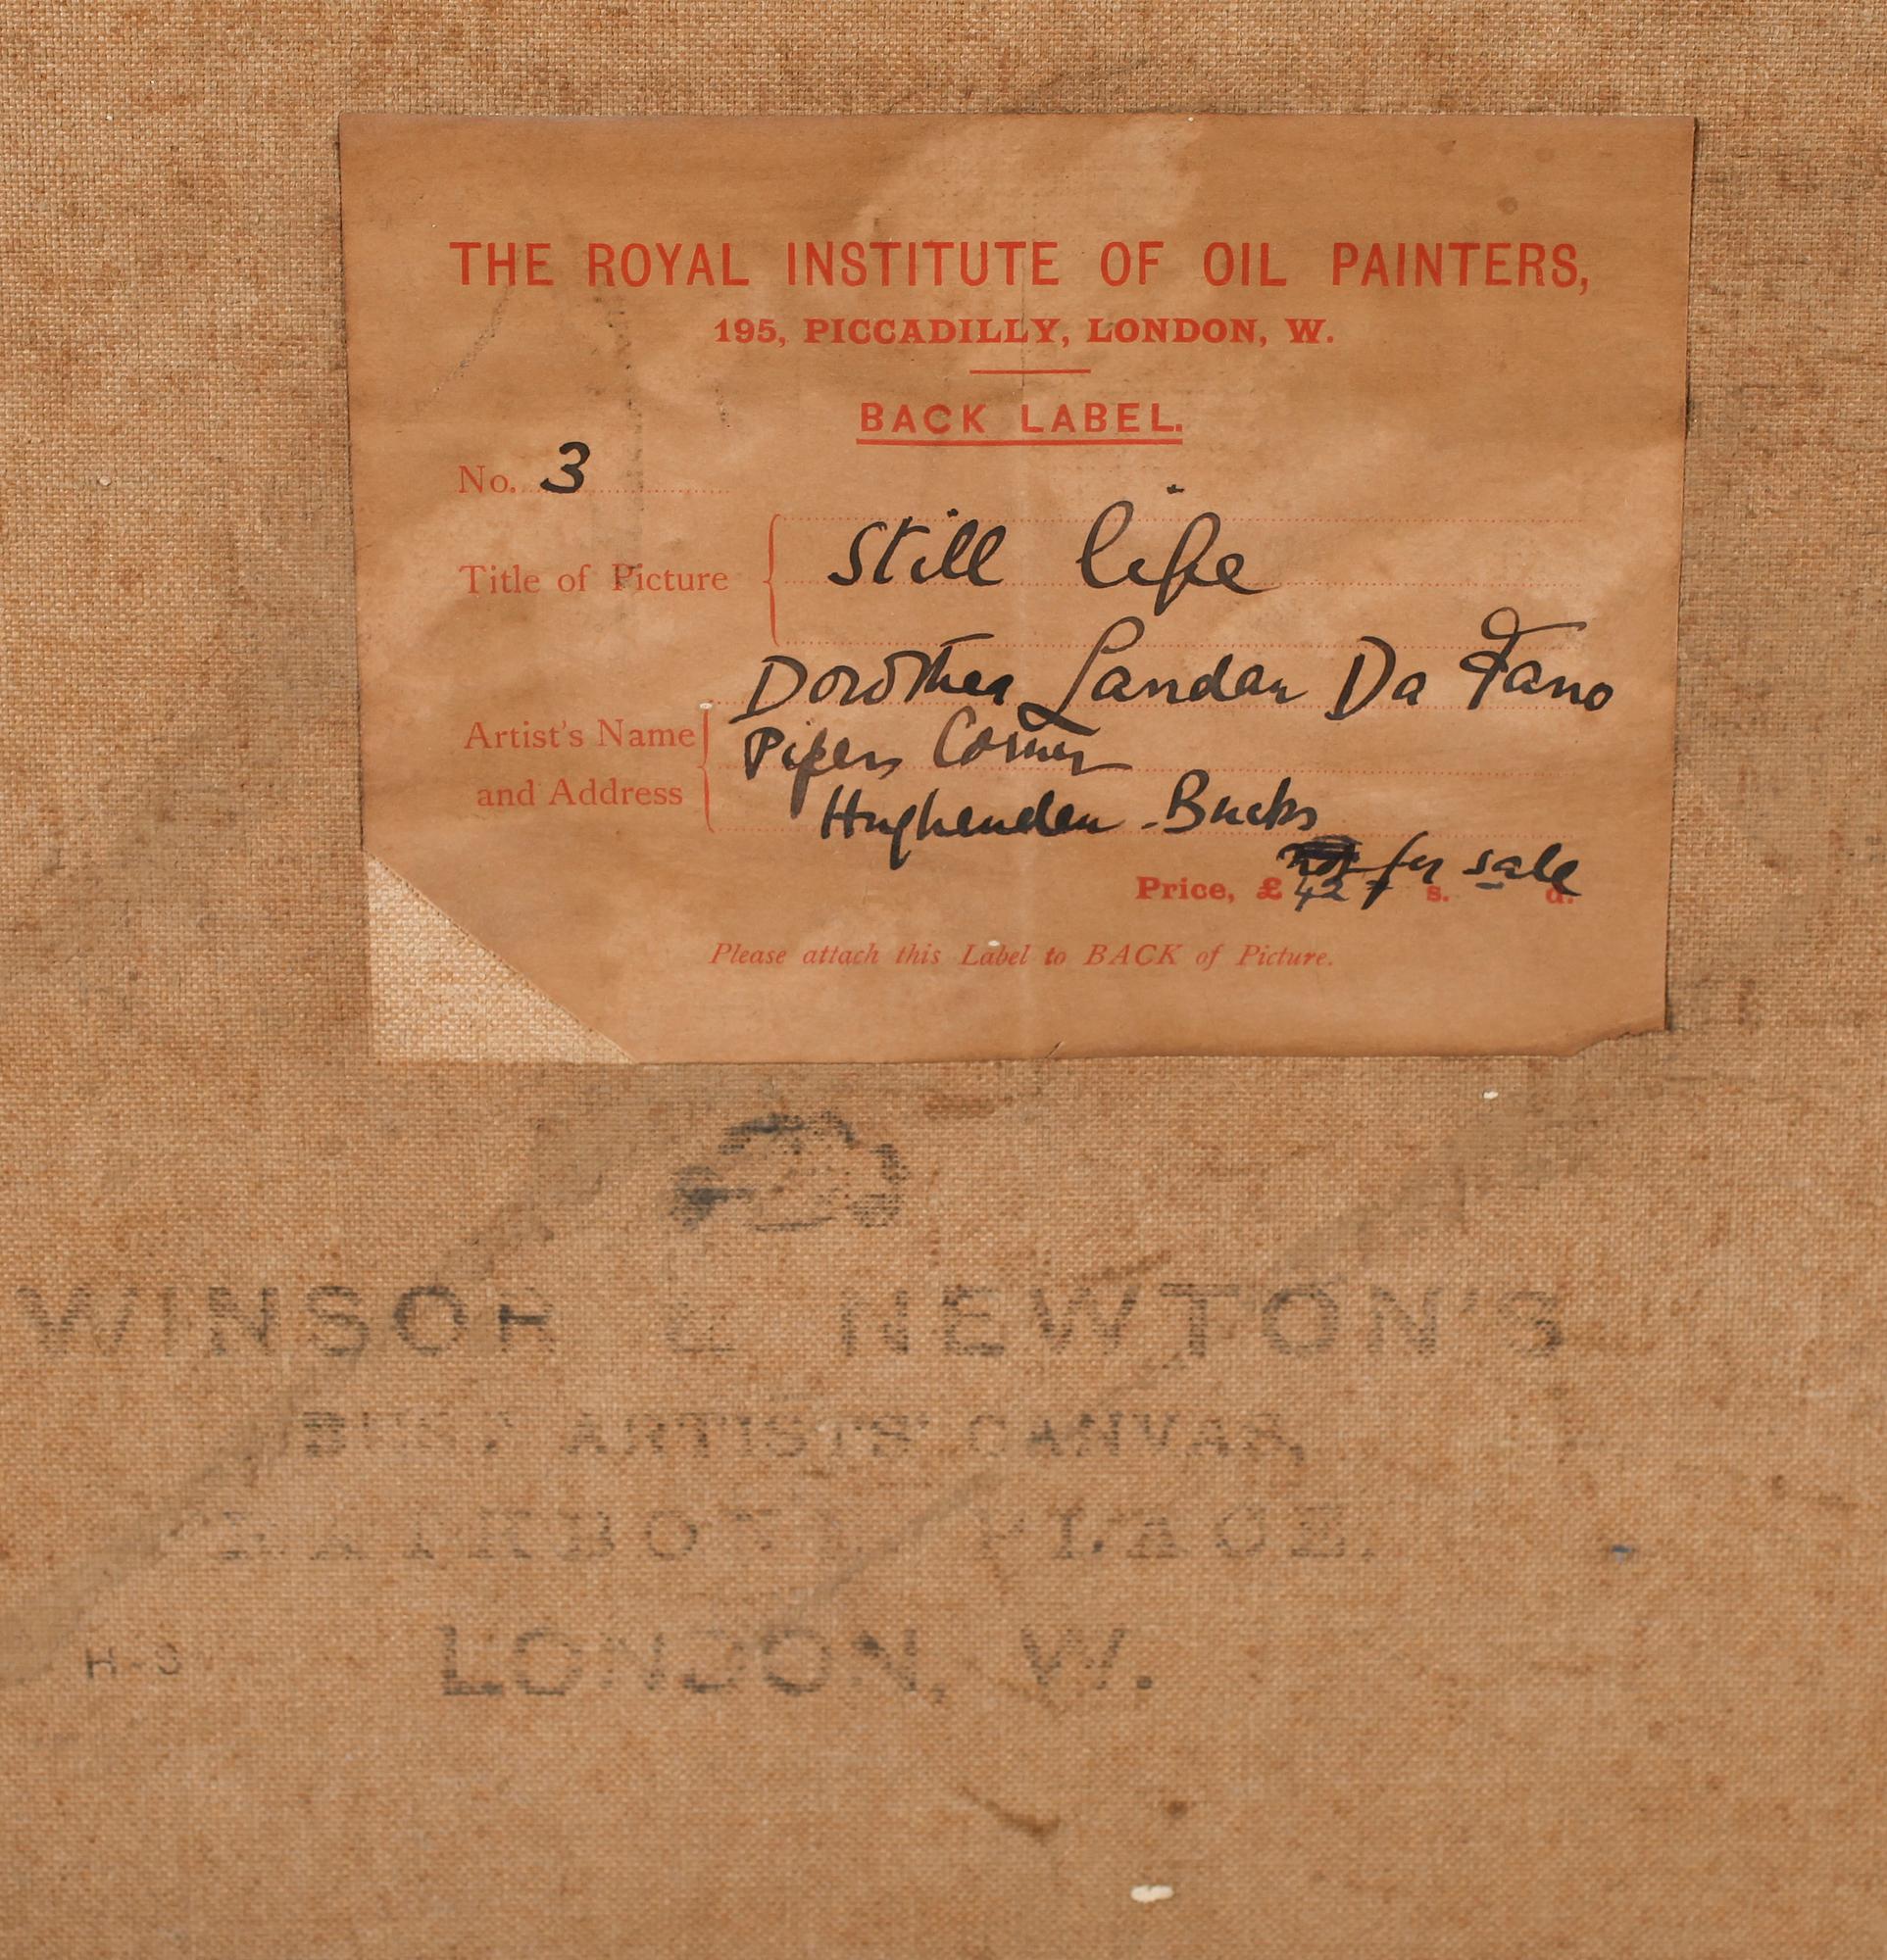 THE ROYAL INSTITUTE OF OIL PAINTERS,
195, PICCADILLY, LONDON, W.
BACK LABEL.
No. 3
Title of Picture Still life
Dorothea Landau Da Fano
Artist's Name Pipers Corner
and Address Hughenden - Bucks
not for sale
Price, £ 42 s. d.
Please attach this Label to BACK of Picture.
WINSOR & NEWTON'S
BEST ARTISTS' CANVAS,
RATHBONE PLACE.
LONDON, W.